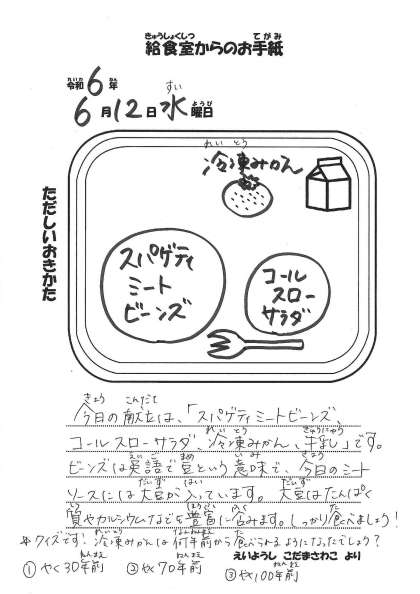 きゅうしょくしつ てがみ
給食室からのお手紙
れいわ ねん
令和6年
すい ようび
6月12日水曜日
ただしいおきかた
れいとう
冷凍みかん
スパゲティ
ミート
ビーンズ
コール
スロー
サラダ
きょう こんだて
今日の献立は、「スパゲティミートビーンズ
れいとう ぎゅうにゅう
コールスローサラダ、冷凍みかん、牛乳」です。
えいご まめ いみ きょう
ビーンズは英語で豆という意味で、今日のミート
だいず はい だいず
ソースには大豆が入っています。大豆はたんぱく
しつ ほうふ ふく た
質やカルシウムなどを豊富に含みます。しっかり食べましょう!
れいとう なんねんまえ た
☆クイズです!冷凍みかんは何年前から食べられるようになったでしょう?
えいようし こだまさわこ より
ねんまえ ねんまえ ねんまえ
①やく30年前 ②やく70年前 ③やく100年前